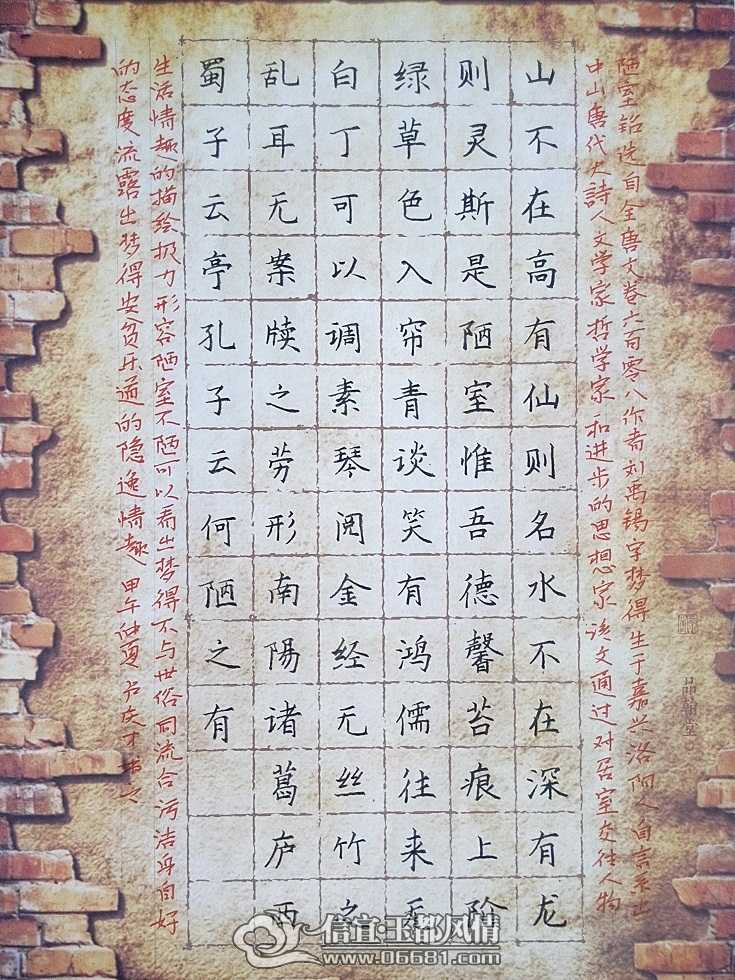 陋室铭选自全唐文卷六百零八作者刘禹锡字梦得生于嘉兴洛阳人自言系出
中山唐代大詩人文学家哲学家和进步的思想家该文通过对居室交往人物
山不在高有仙则名水不在深有龙
则灵斯是陋室惟吾德馨苔痕上阶
绿草色入帘青谈笑有鸿儒往来无
白丁可以调素琴阅金经无丝竹之
乱耳无案牍之劳形南陽诸葛庐西
蜀子云亭孔子云何陋之有
生活情趣的描绘极力形容陋室不陋可以看出梦得不与世俗同流合污洁身自好
的态度流露出梦得安贫乐道的隐逸情趣 甲午仲夏 才书之
信宜·玉都风情
www.06681.com